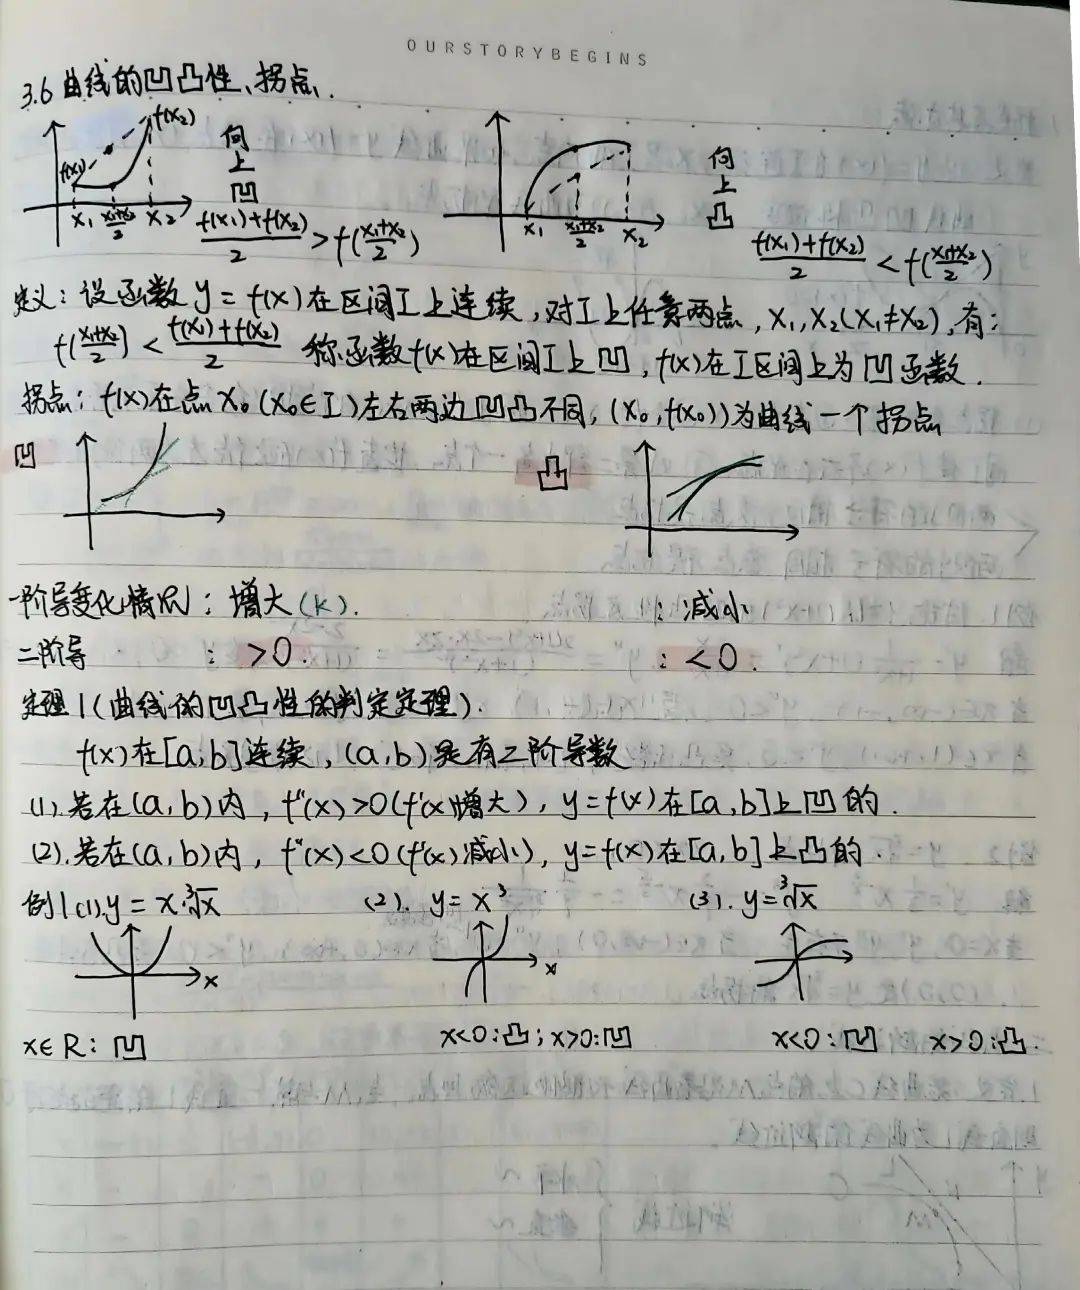 OURSTORYBEGINS
3.6 曲线的凹凸性、拐点.
f(x₁) f(x₂) 向上凹 向上凸
x₁ (x₁+x₂)/2 x₂ x₁ (x₁+x₂)/2 x₂
(f(x₁)+f(x₂))/2 > f((x₁+x₂)/2) (f(x₁)+f(x₂))/2 < f((x₁+x₂)/2)
定义：设函数 y = f(x) 在区间I上连续，对I上任意两点，x₁,x₂(x₁≠x₂),有：
f((x₁+x₂)/2) < (f(x₁)+f(x₂))/2 称函数f(x)在区间I上凹，f(x)在I区间上为凹函数.
拐点：f(x)在点x₀(x₀∈I)左右两边凹凸不同，(x₀,f(x₀))为曲线一个拐点
凹 凸
一阶导变化情况：增大(k). ：减小
二阶导 ：>0. ：<0.
定理1(曲线的凹凸性的判定定理).
f(x)在[a,b]连续，(a,b)是有二阶导数
(1).若在(a,b)内，f″(x)>0(f′(x)增大)，y=f(x)在[a,b]上凹的.
(2).若在(a,b)内，f″(x)<0(f′(x)减小)，y=f(x)在[a,b]上凸的.
例1(1).y = x·∛x (2). y = x³ (3). y=∛x
x x
x∈R：凹 x<0:凸；x>0:凹 x<0:凹 x>0:凸.